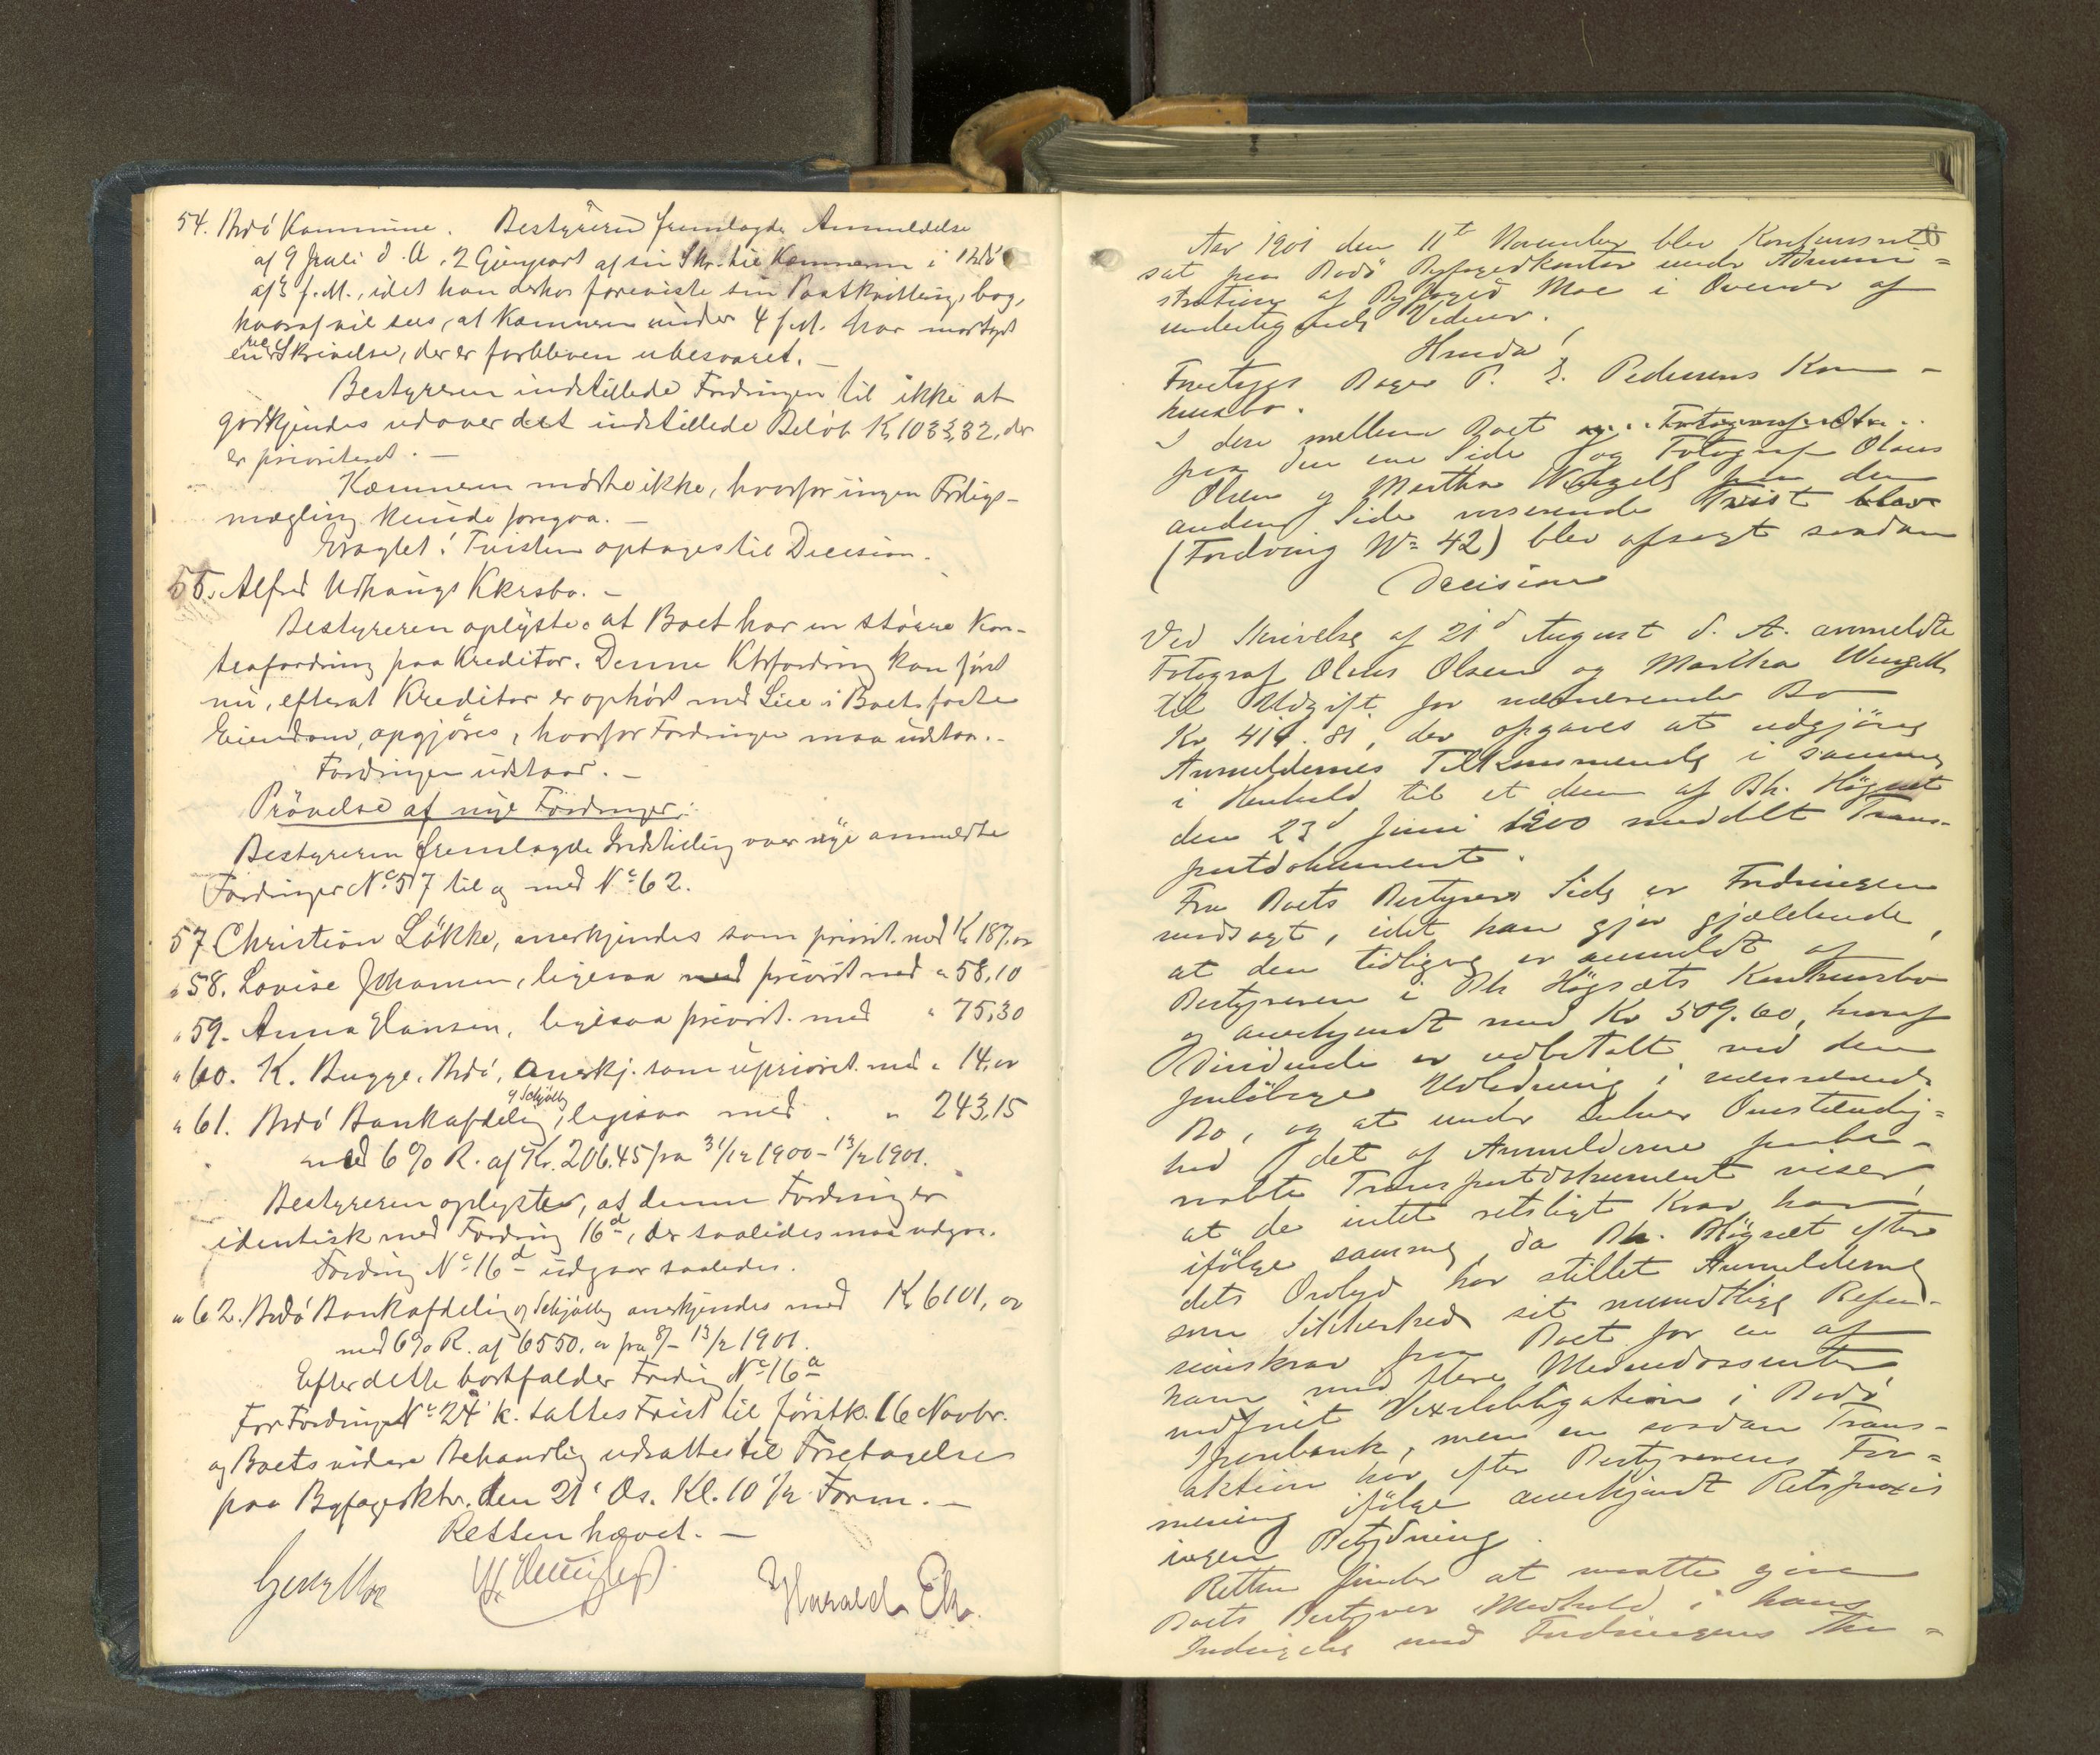 54. Bodö Kommune. Bestyreren fremlagde Anmeldelse
af 9 Juli d. A., 2 Gjenpart af sin Skr. til Kæmneren i Bodö
af 3 f. M., idet han derhos foreviste sin Postkvitterings bog,
hvoraf vil sees, at Kæmneren under 4 f. M. har modtaget
en Skrivelse, der er forbleven ubesvaret. –
Bestyreren indstillede Fordringen til ikke at
godkjendes udover det indstillede Beløb K 1033,32, der
er prioriteret. –
Kæmneren mødte ikke, hvorfor ingen Forligs-
mægling kunde foregaa. –
Eragtet! Tvisten optages til Decision.
55. Alfred Udhaugs Kkrsbo. –
Bestyreren oplyste, at Boet har en større Kon-
trafordring paa Kreditor. Denne Ktrfordring kan først
nu, efterat Kreditor er ophørt med Leie i Boets faste
Eiendom, opgjøres, hvorfor Fordringen maa udstaa. –
Fordringen udstaar. –
Prövelse af nye Fordringer:
Bestyreren fremlagde Indstilling over nye anmeldte
Fordringer No 57 til og med No 62.
57 Christian Lökke, anerkjendes som priorit. med K 187, oo
" 58. Lovise Johansen, ligesaa med priorit med " 58,10
" 59. Anna Hansen, ligesaa priorit. med " 75,30
" 60. K. Bugge, Bodö, anerkj. som uprioret. med " 14, oo
" 61. Bodö Bankafdeling, ligesaa med " 243,15
og Schjølberg
med 6 % R. af Kr. 206.45 fra 31/12 1900 – 13/2 1901.
Bestyreren oplyste, at denne Fordring er
identisk med Fordring 16d, der saaledes maa udgaa.
Fordring No 16d udgaar saaledes.
" 62. Bodö Bankafdeling og Schjølberg anerkjendes med K 6101, oo
med 6% R. af 6550, oo fra 8/ – 13/2 1901.
Efter dette bortfalder Fordring No 16a
For Fordring No 24 k. sattes Frist til förstk. 16 Novbr.
og Boets videre Behandling udsattes til Foretagelse
paa Byfogedktr. den 21' ds. Kl. 10 1/2 Form. –
Retten hævet. –
Georg Moe
Harald Ek.
Aar 1901 den 11te November blev Konkursret
sat paa Bodö Byfogedkontor under Admini=
stration af Byfoged Moe i Overvær af
undertegnede Vidner.
Hvorda!
Foretages Bager P. E. Pedersens Kon-
kursbo.
I den mellem Boet og Fotograf
paa den ene Side og Fotograf Olaus
Olsen og Martha Wengell paa den
anden Side værende Tvist blev
(Fordring No 42) blev afsagt saadan
Decision
Ved Skrivelse af 21d August d. A. anmeldte
Fotograf Olaus Olsen og Martha Wengell
til Udgift for nærværende Bo
Kr 414.81, der opgaves at udgjöre
Anmeldernes Tilkommende i samme
i Henhold til et dem af Bh. Högset
den 23d Juni 1900 meddelt Trans-
portdokument.
Fra Boets Bestyrers Side er Fordringen
modsagt, idet han gjør gjældende,
at den tidligere er anmeldt af
Bestyreren i Bh Högsets Konkursbo
og anerkjendt med Kr 509.60, hvoraf
Dividende er udbetalt ved den
forelöbige Udlodning i nærværende
Bo, og at under enhver Omstændig=
hed det af Anmelderne paabe-
raabte Transportdokument viser,
at de intet retsligt Krav har
ifölge samme, da Bh. Högset efter
dets Ordlyd har stillet Anmelderne
som Sikkerhed sit mundtlige Regres-
krav paa Boet for en af
ham med flere Medendossenter
Vexelobligation i Bodö
Sparebank, men en saadan Trans-
aktion har efter Bestyrerens For=
mening ifölge anerkjendt Retspraxis
ingen Betydning.
Retten finder at maatte give
Boets Bestyrer Medhold i hans
Indsigelse mod Fordringens